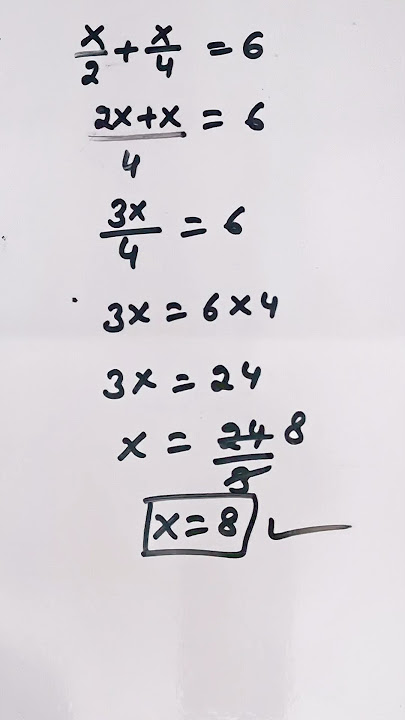 x/2 + x/4 = 6
2x+x/4 = 6
3x/4 = 6
3x = 6 x 4
3x = 24
x = 24/3 8
x = 8 ✓